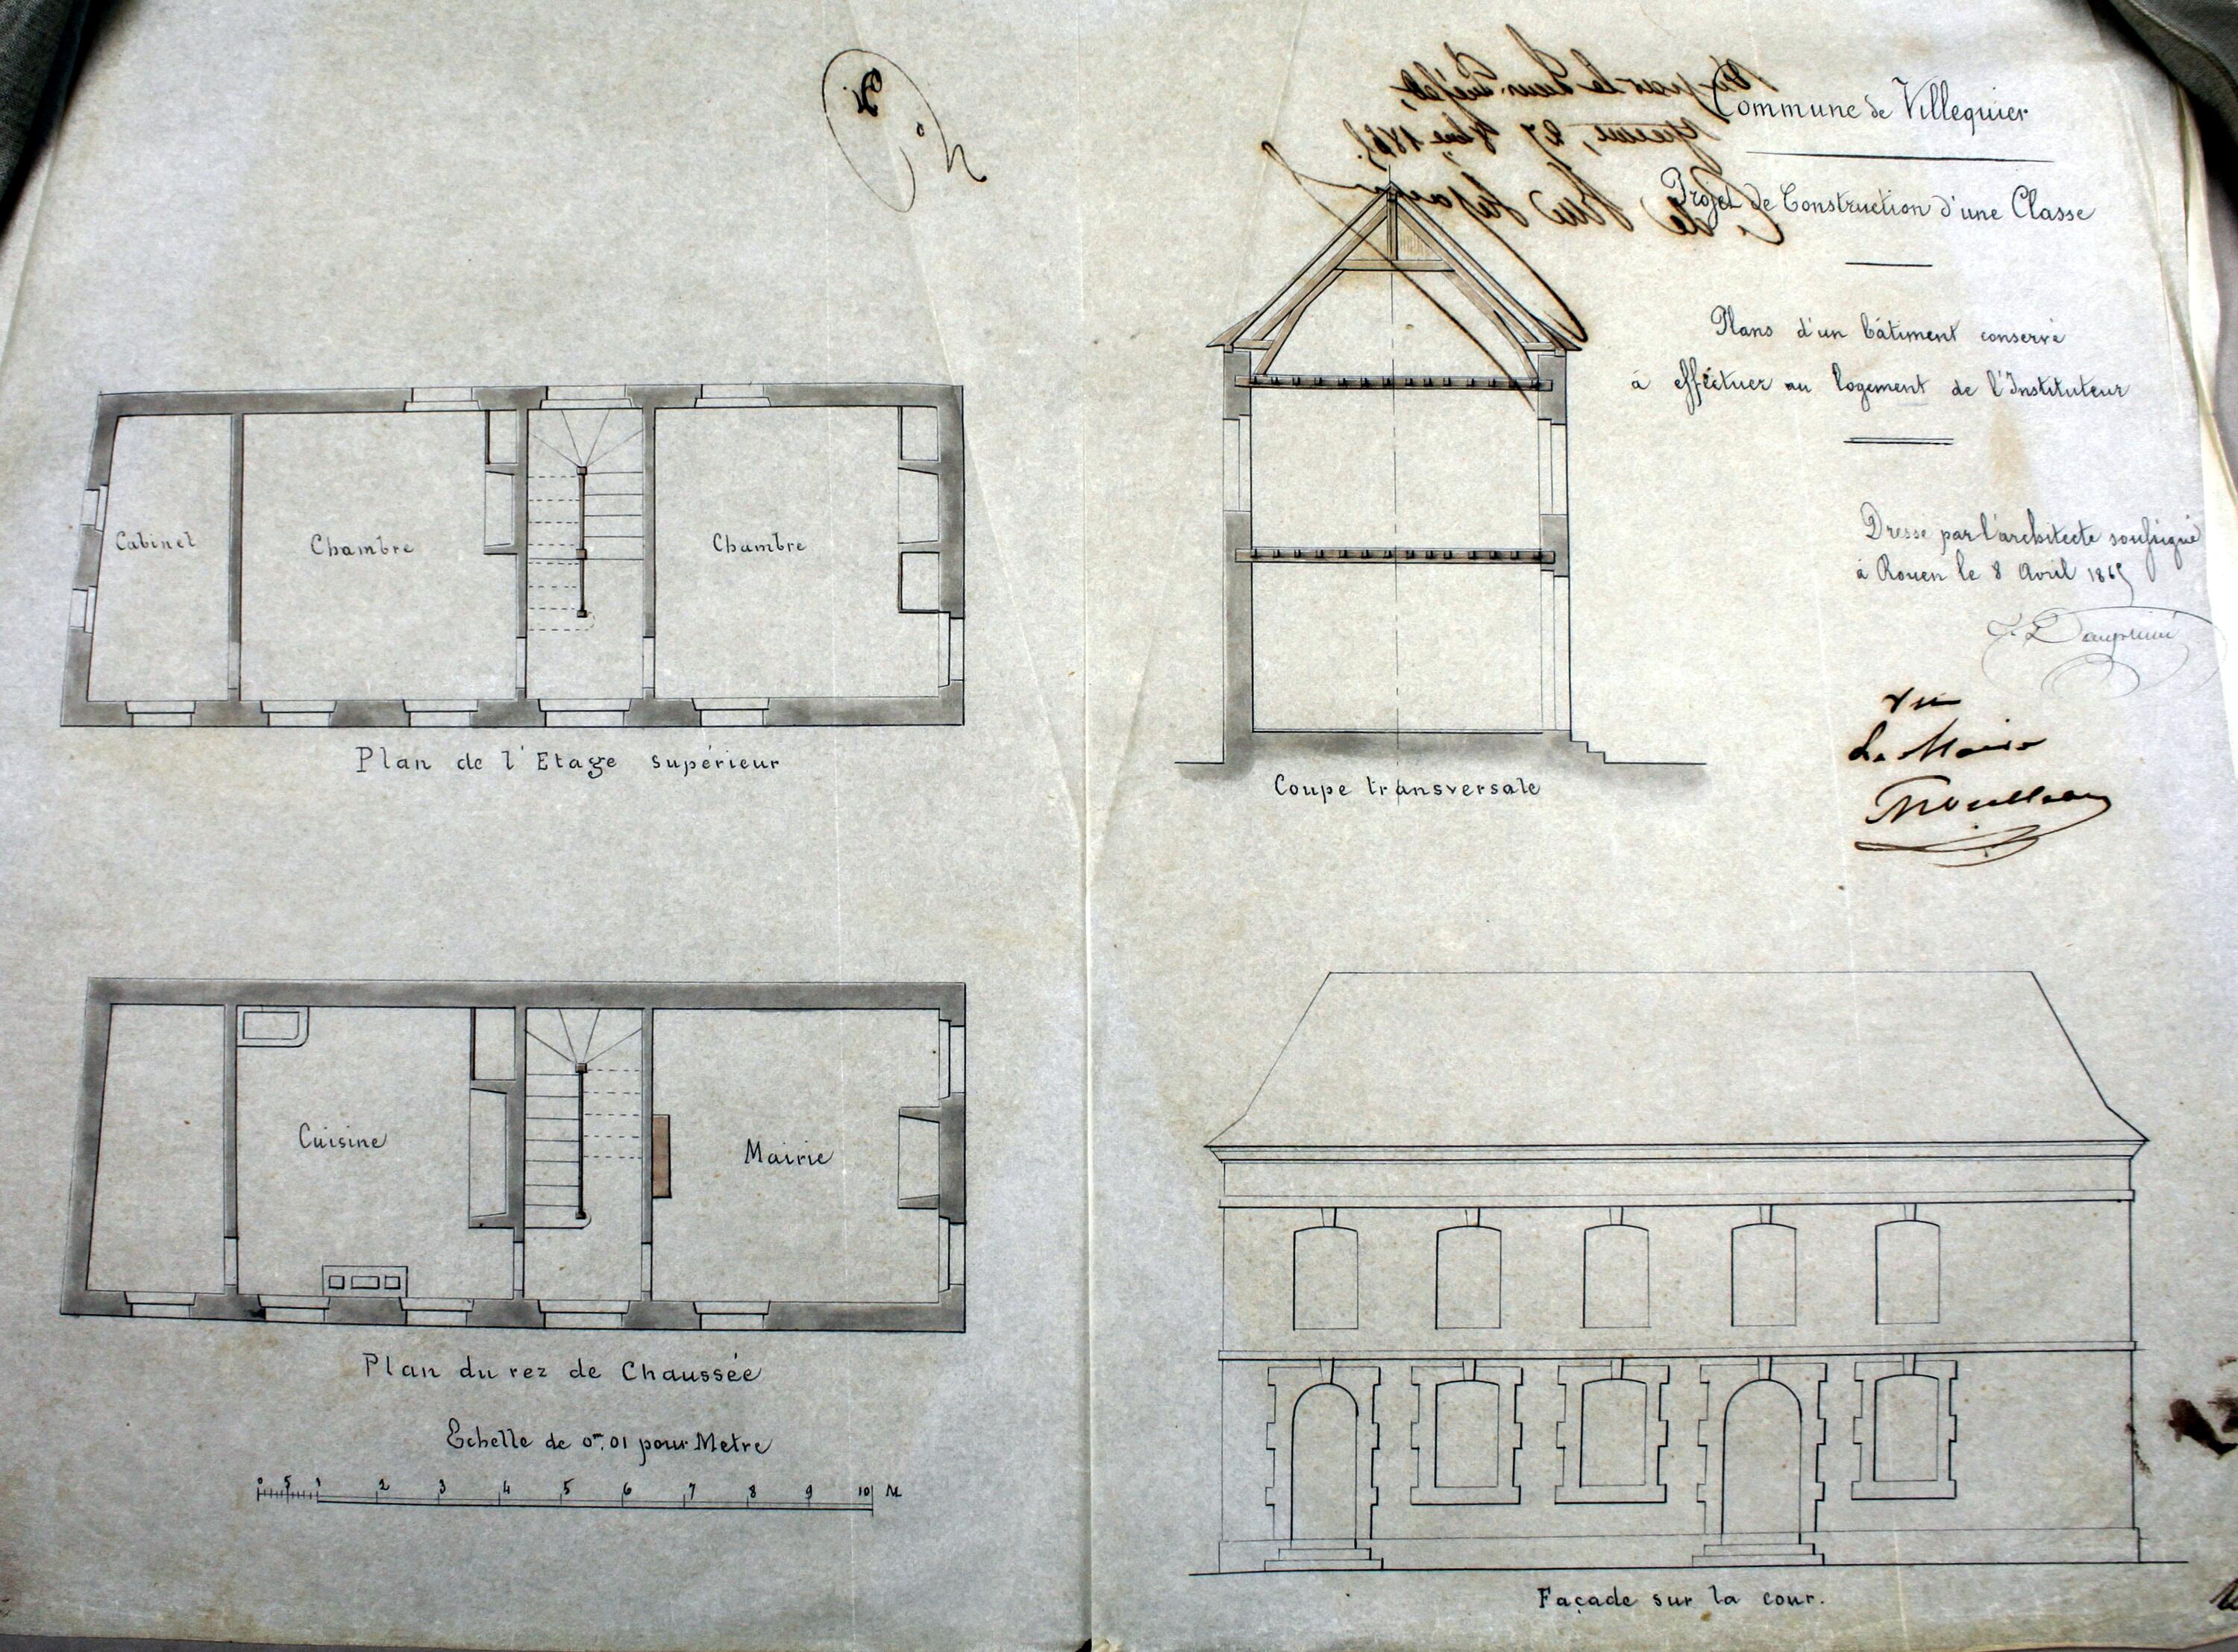 Commune de Villequier
Projet de Construction d'une Classe
Plans d'un bâtiment conservé
à effectuer au logement de l'Instituteur
Dressé par l'architecte soussigné
à Rouen le 8 Avril 1865
Vu
Le Maire
Cabinet
Chambre
Chambre
Plan de l'Etage supérieur
Coupe transversale
Cuisine
Mairie
Plan du rez de Chaussée
Echelle de 0m,01 pour Metre
0 5 1 2 3 4 5 6 7 8 9 10 M
Façade sur la cour.